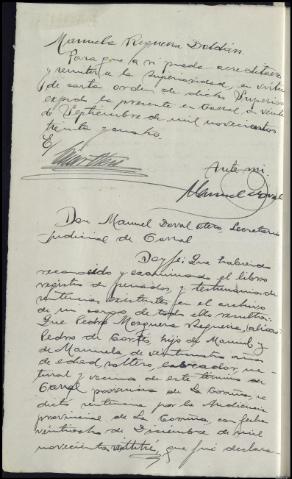 Manuela Regueira Doldán
Para que así pueda acreditarse
y remitir a la Superioridad, en virtud
de carta orden de dicha Superiori
expido la presente en Corral, a veinte
de Septiembre de mil novecientos
treinta y ocho.
E/
Ante mi:
Manuel Doval
Don Manuel Doval Otero, Secretario
judicial de Corral
Doy fe: Que habiendo
reconocido y examinado el libro
registro de penados, y testimonios de
existentes en el archivo
de mi cargo de todo ello resulta:
Que Pedro Mosquera Regueira, (alias)
Pedro de Corto, hijo de Manuel y
de Manuela, de veintinueve años
de edad, soltero, labrador, na-
tural y vecino de este término de
Corral provincia de La Coruña, se
dictó sentencia por la Audiencia
provincial de La Coruña, con fecha
veintiocho de Diciembre de mil
novecientos, que fué declara-